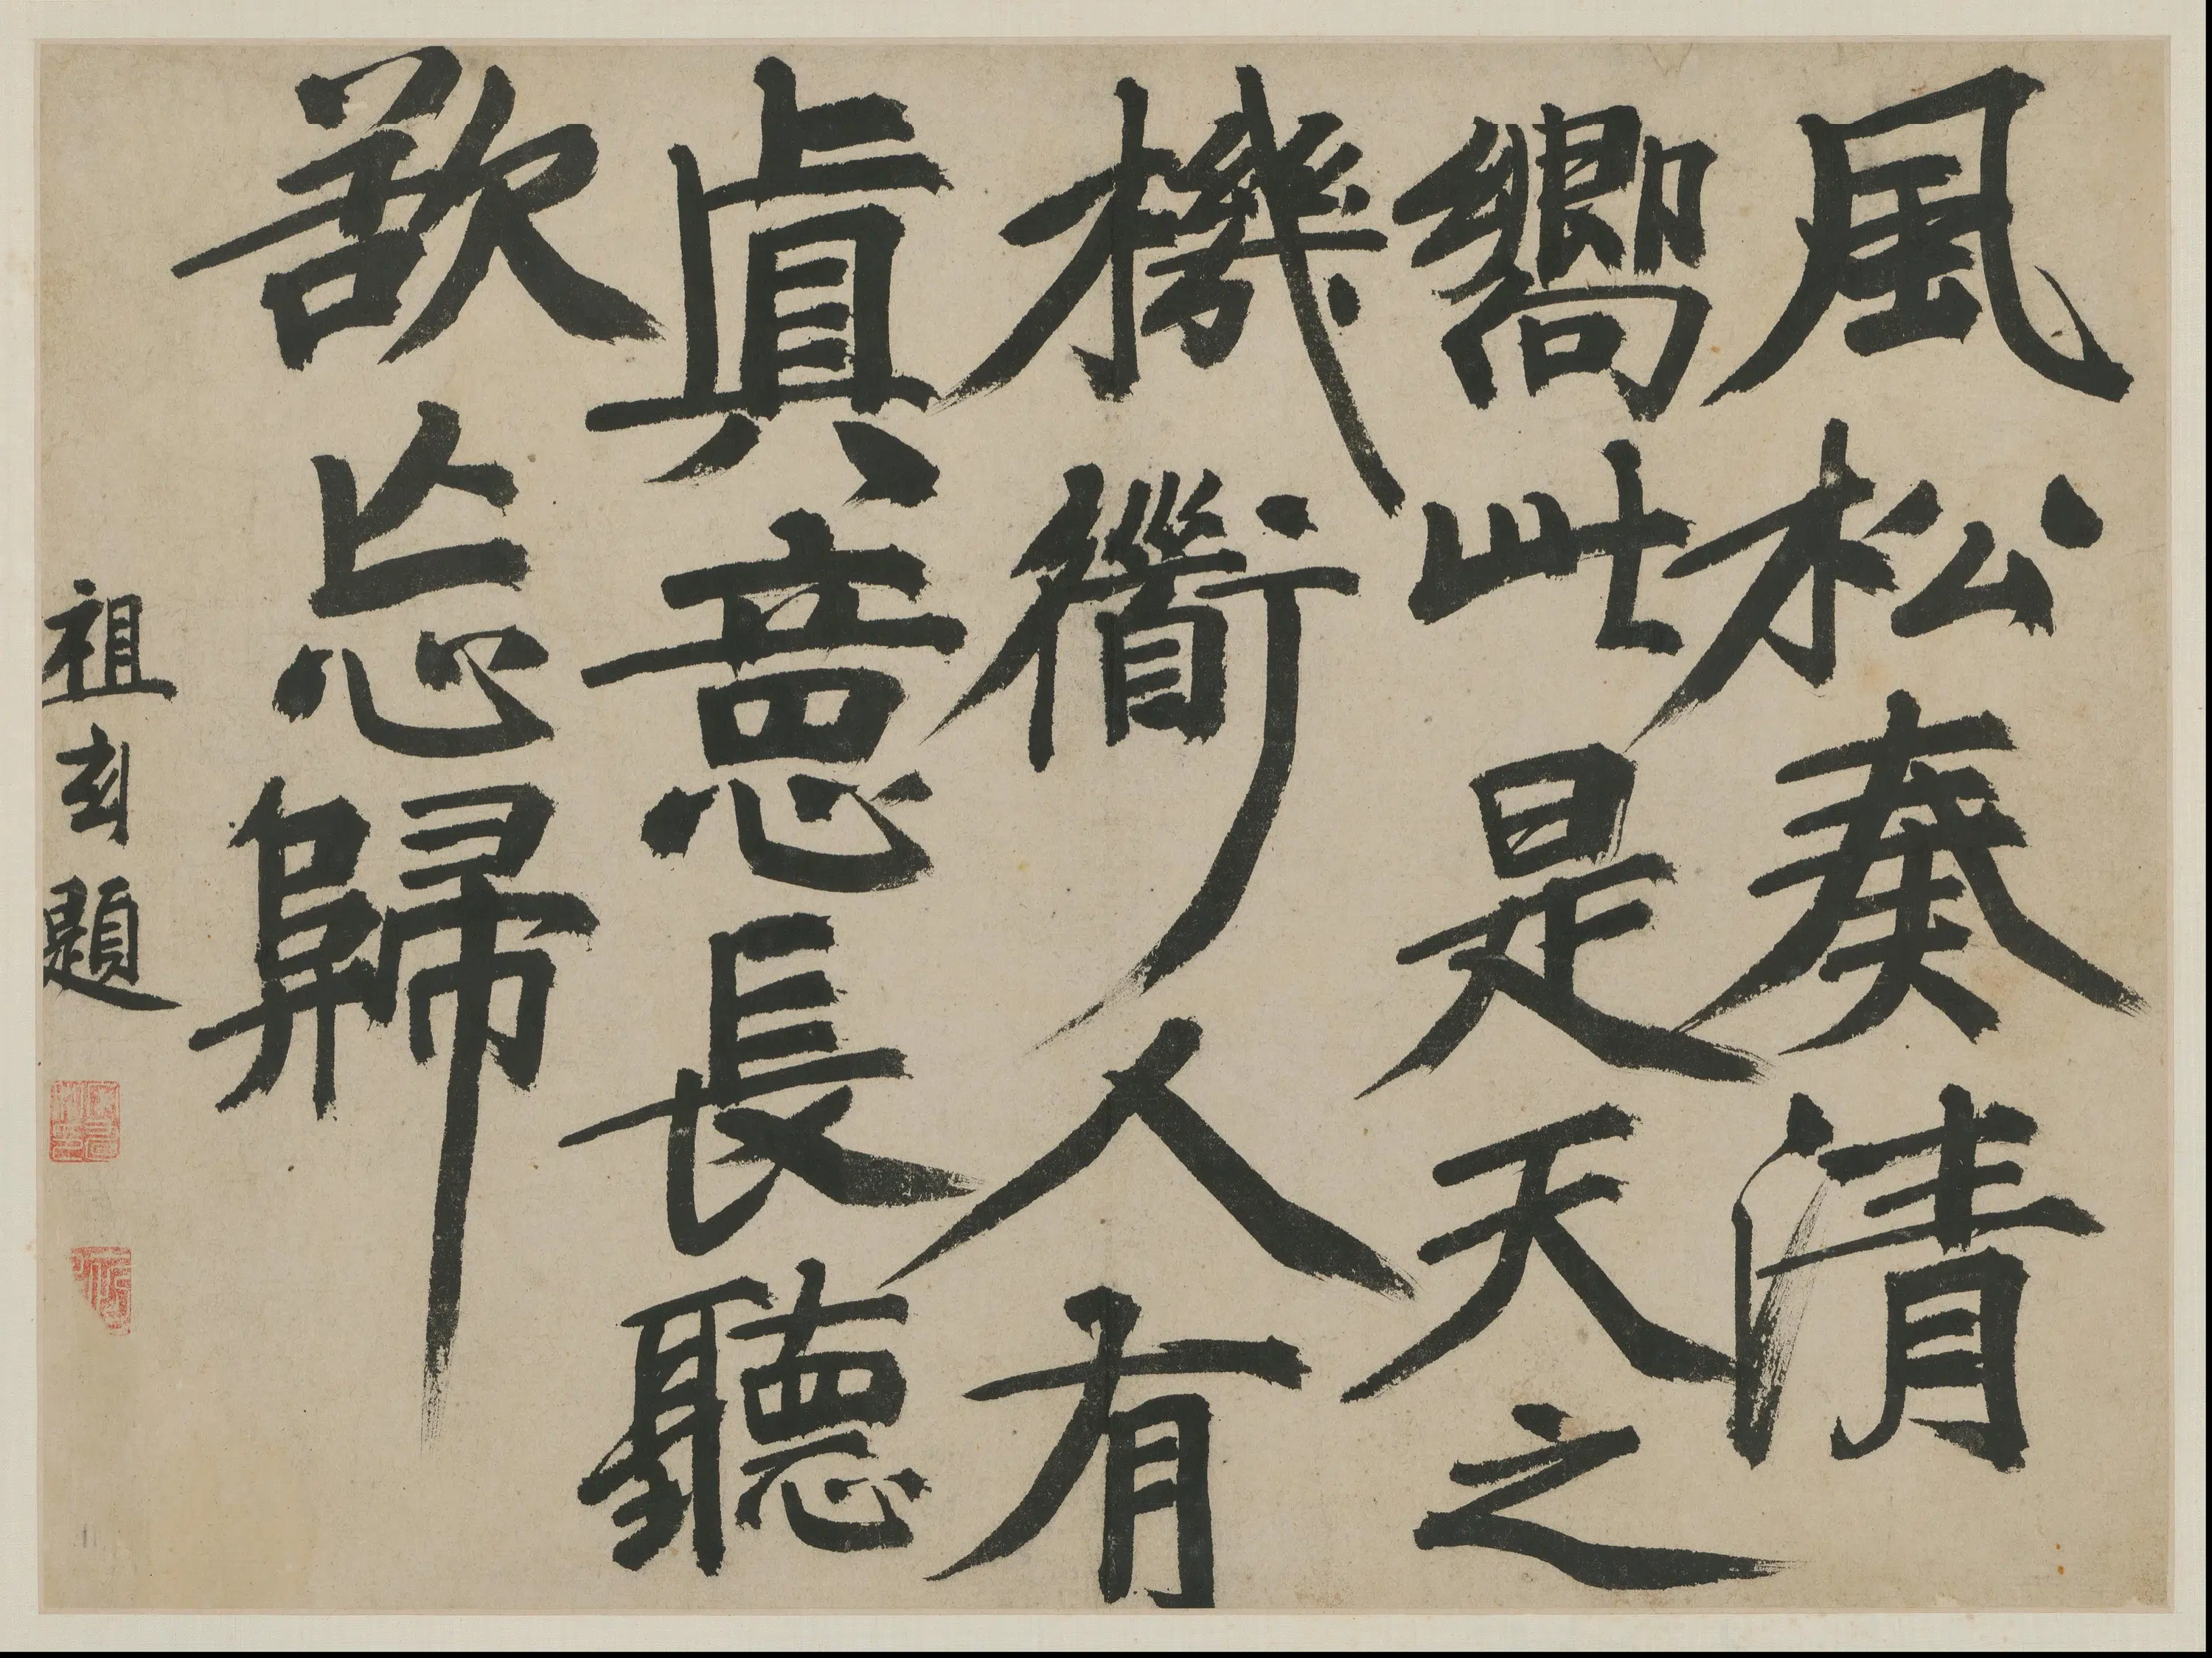 風松奏清
嚮此是天之
機衜人有
眞意長聽
欲忘歸
祖玄題